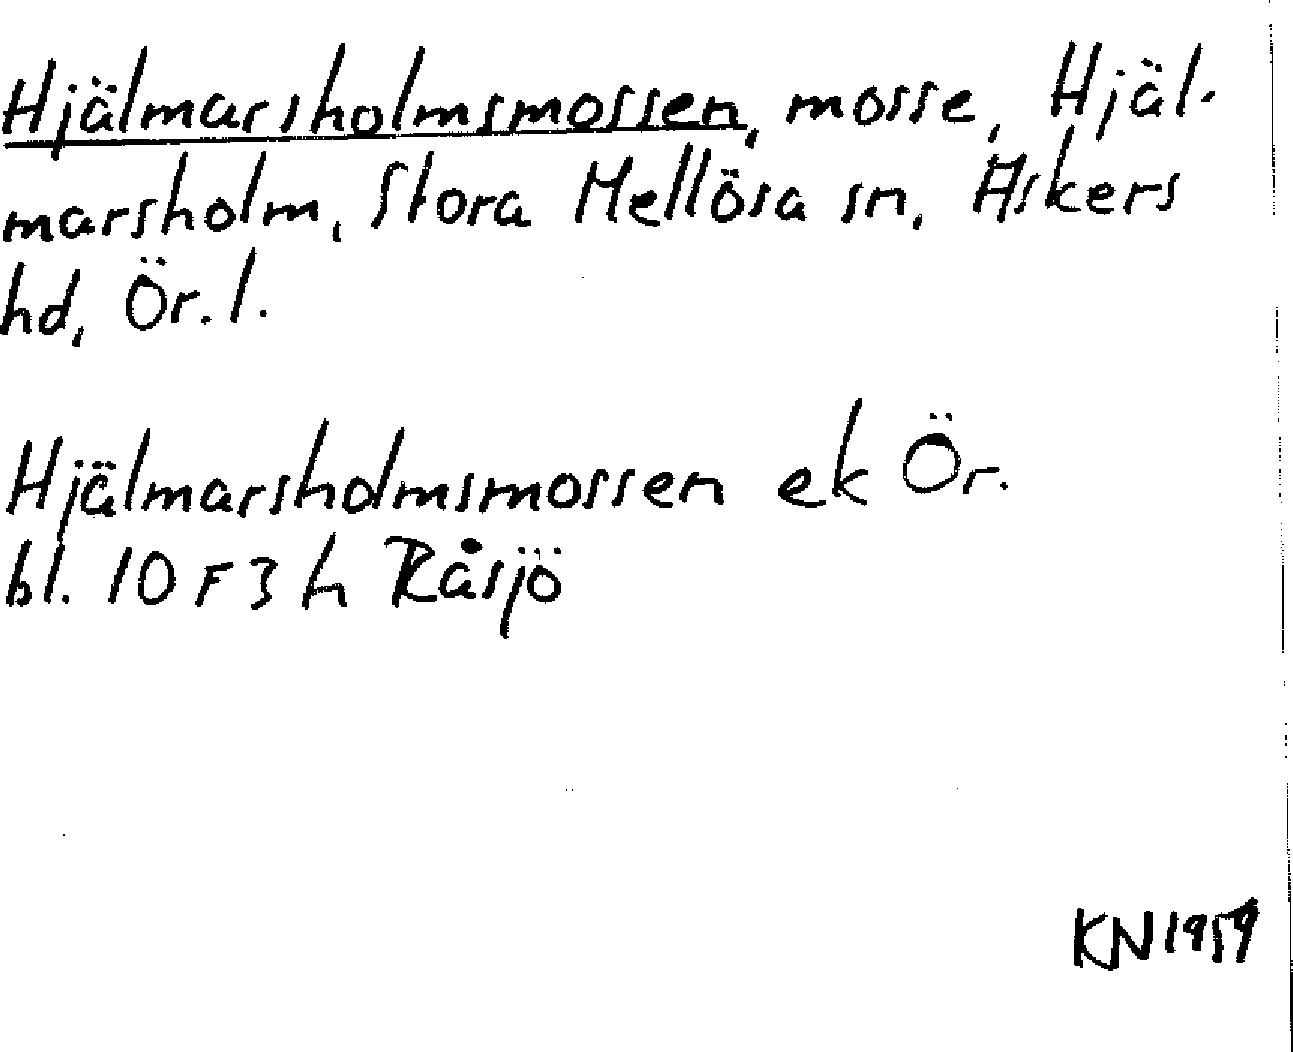 Hjälmarsholmsmossen, mosse, Hjäl-
marsholm, Stora Mellösa sn, Askers
hd, Ör. l.
Hjälmarsholmsmossen ek Ör.
bl. 10 F 3 h Råsjö
KN 1959